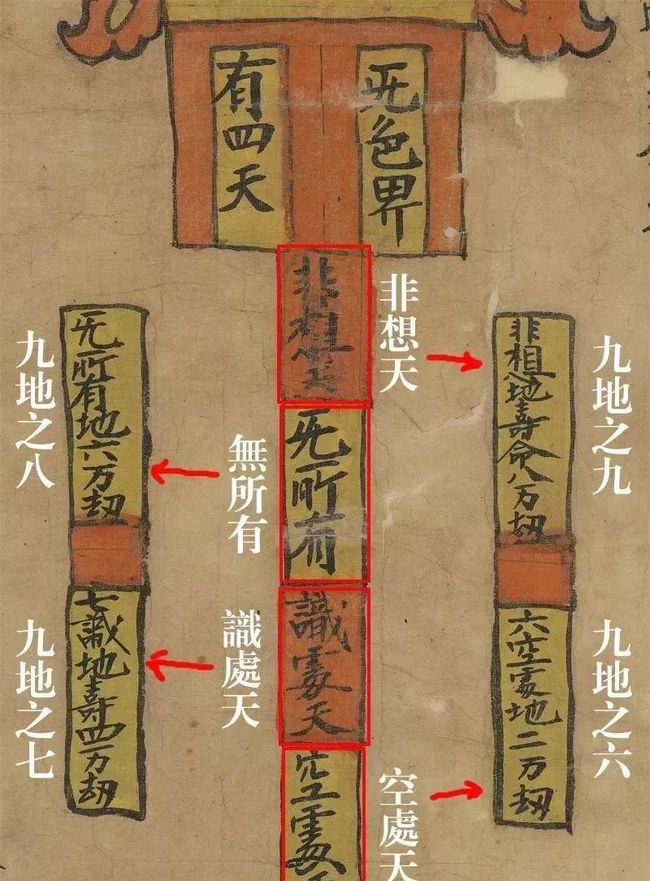 无色界
有四天
非想天
无所有
識處天
空處天
非想地壽命八万劫
六空處地二万劫
无所有地六万劫
七識地壽四万劫
非想天
九地之九
無所有
九地之八
識處天
九地之七
空處天
九地之六